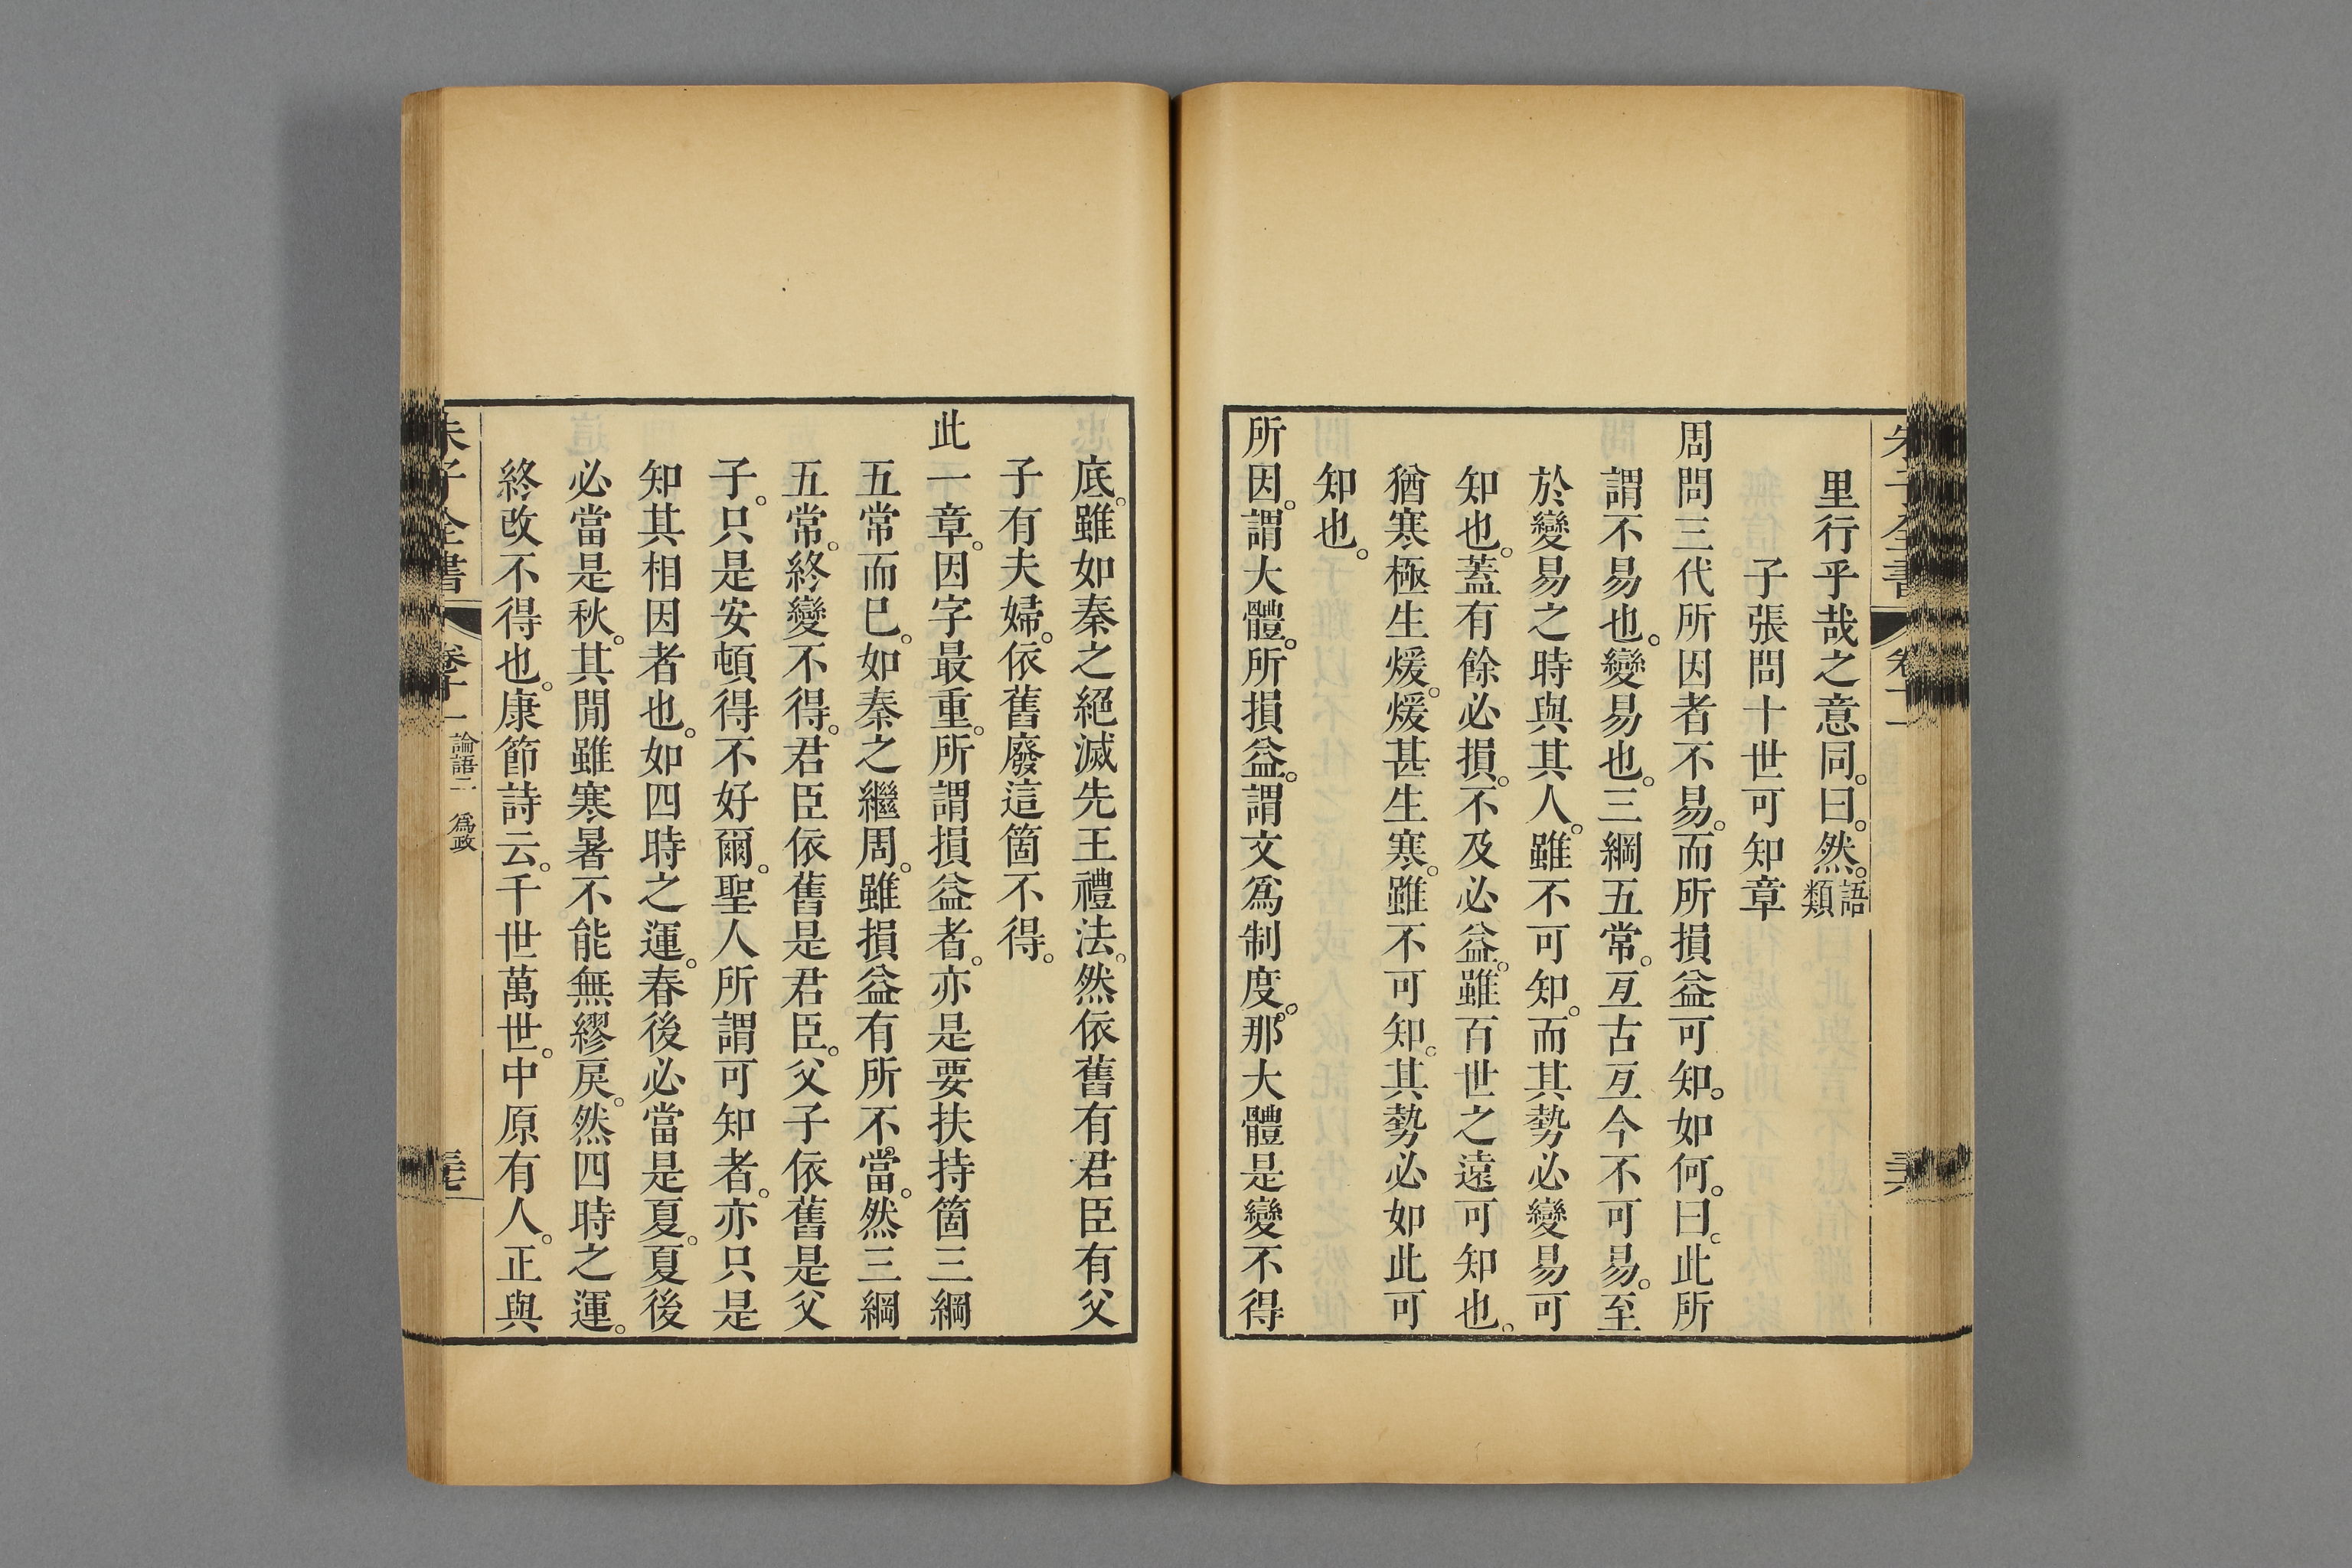 里行乎哉之意同。曰。然。語類
子張問十世可知章
周問三代所因者不易。而所損益可知。如何。曰。此所
謂不易也。變易也。三綱五常。亙古亙今不可易。至
於變易之時與其人。雖不可知。而其勢必變易可
知也。蓋有餘必損。不及必益。雖百世之遠可知也。
猶寒極生煖。煖甚生寒。雖不可知。其勢必如此可
知也。
所因。謂大體。所損益。謂文爲制度。那大體是變不得
底。雖如秦之絕滅先王禮法。然依舊有君臣有父
子有夫婦。依舊廢這箇不得。
此一章。因字最重。所謂損益者。亦是要扶持箇三綱
五常而已。如秦之繼周。雖損益有所不當。然三綱
五常。終變不得。君臣依舊是君臣。父子依舊是父
子。只是安頓得不好爾。聖人所謂可知者。亦只是
知其相因者也。如四時之運。春後必當是夏。夏後
必當是秋。其閒雖寒暑不能無繆戾。然四時之運。
終改不得也。康節詩云。千世萬世。中原有人。正與
朱子全書 卷十一 論語二 爲政